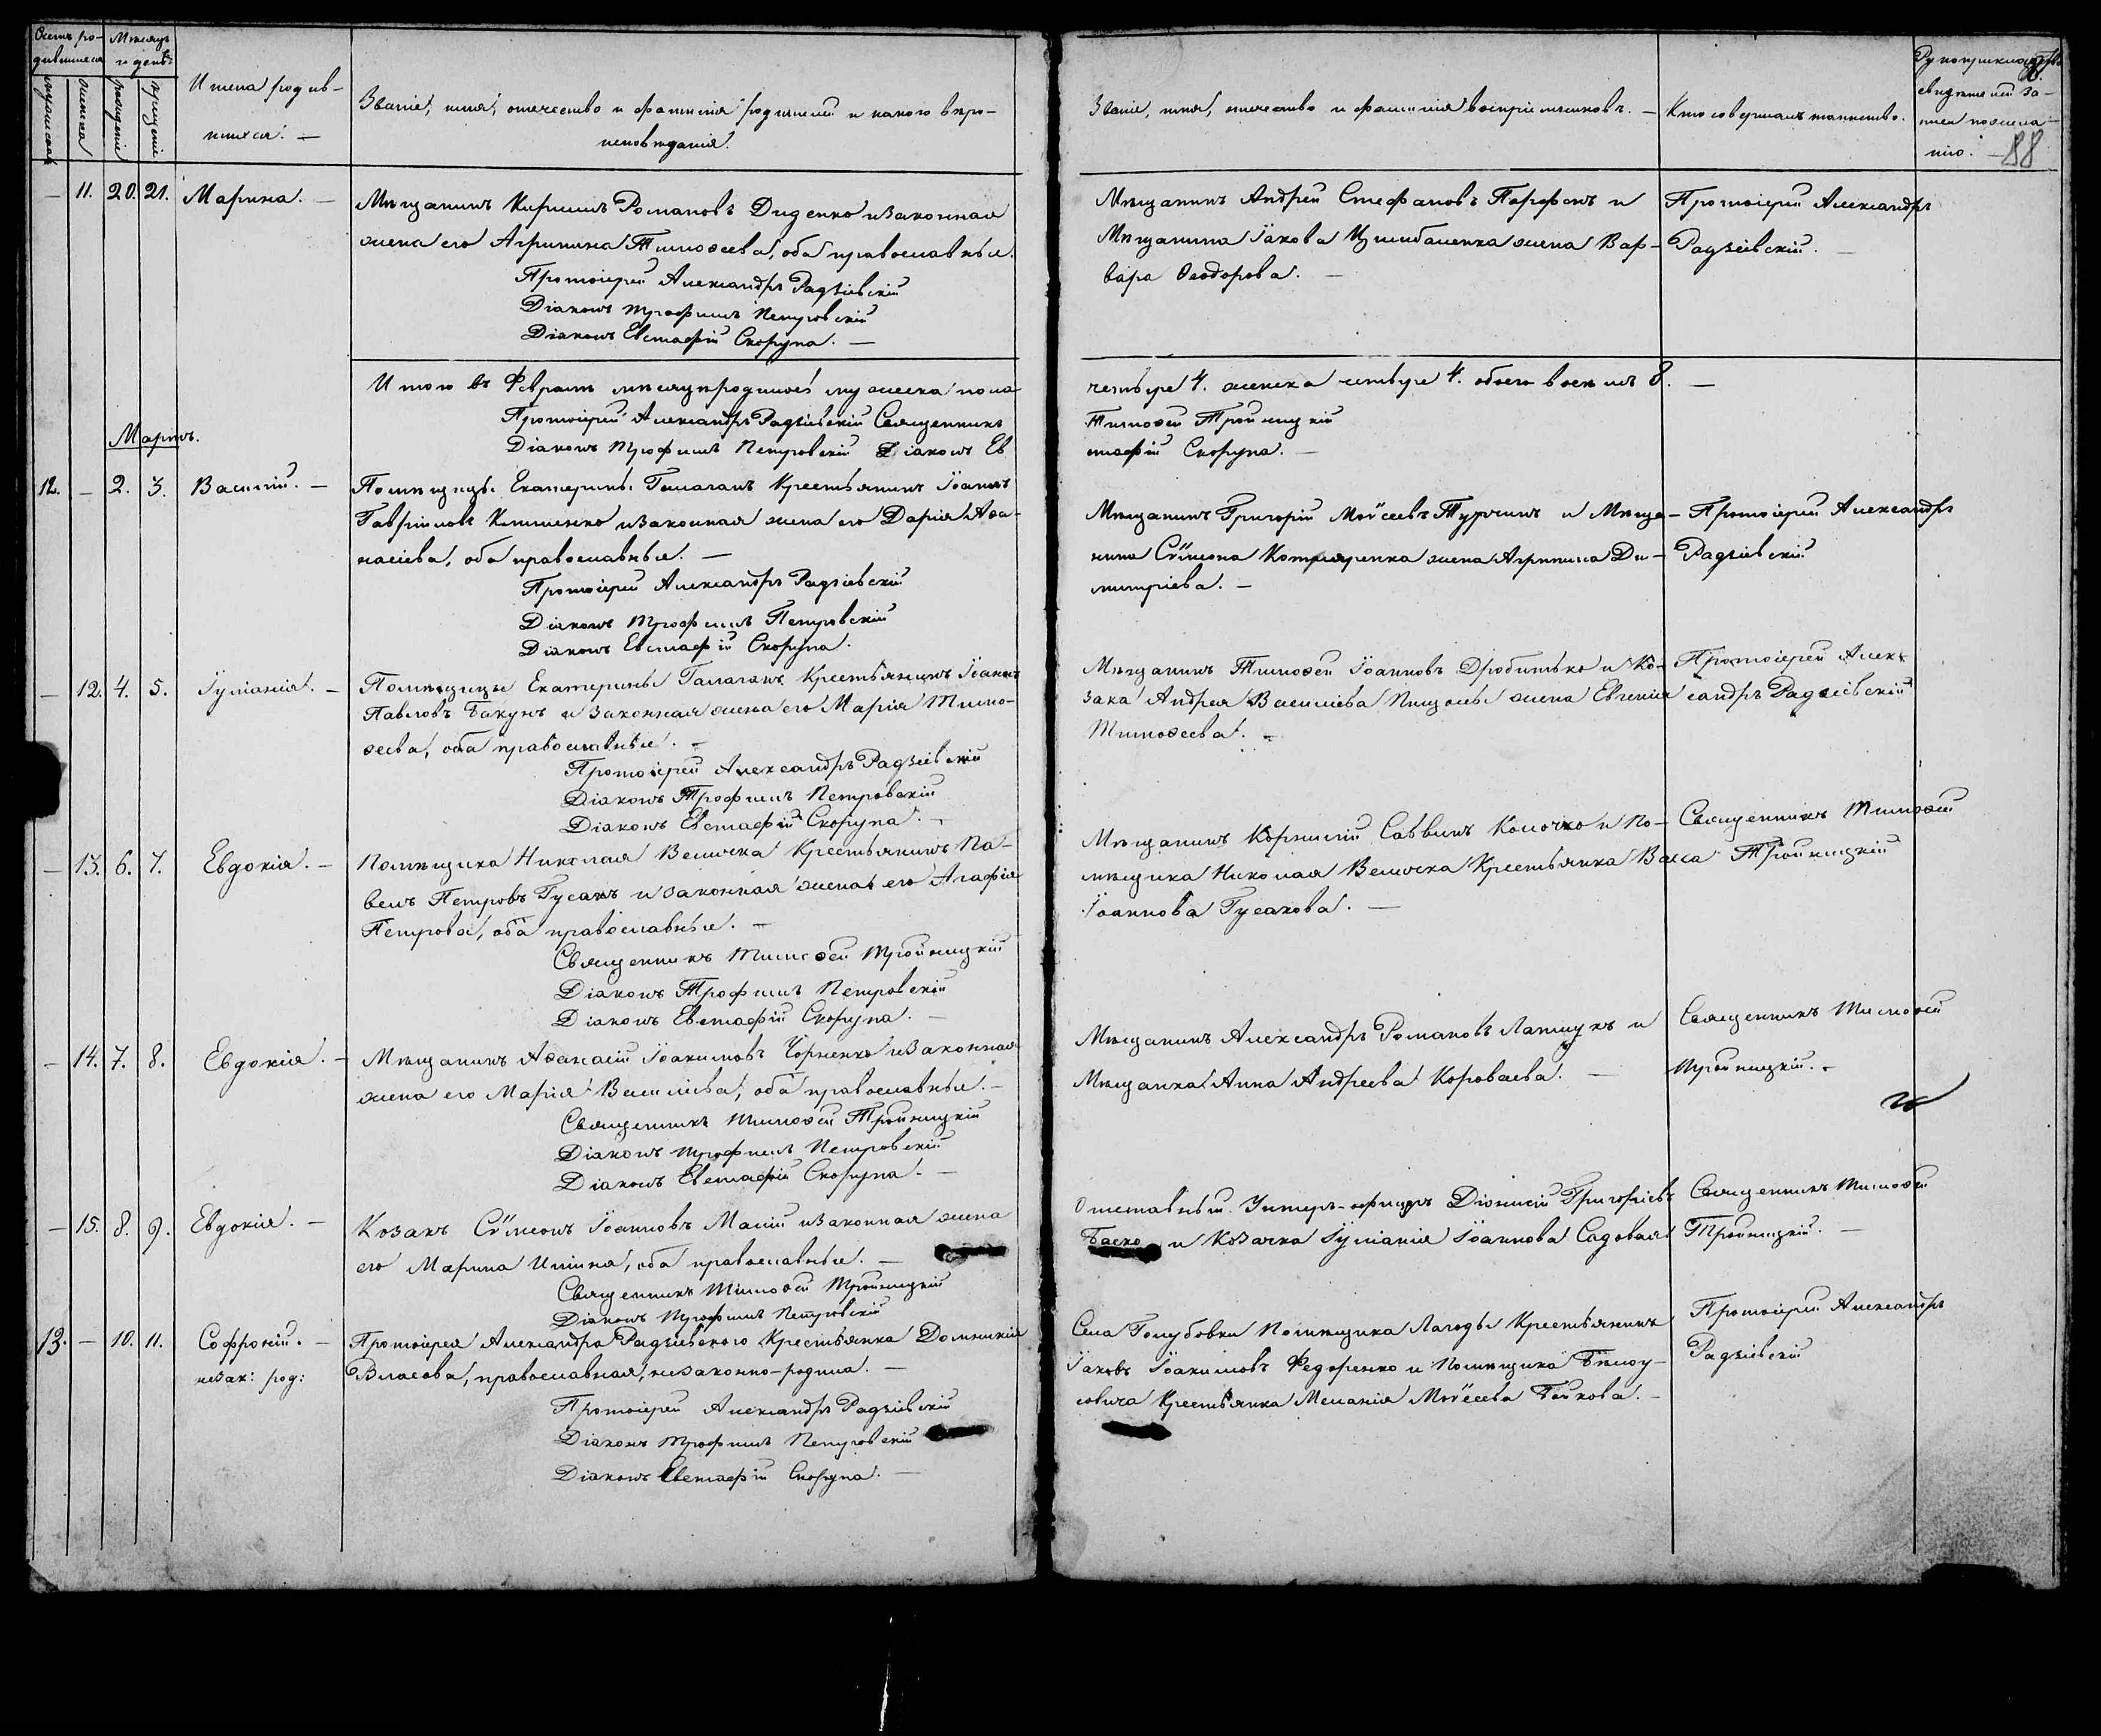 Счетъ ро-
дившихся
Мѣсяцъ
и день
мужеска
женска
рожденіе
крещеніе
Имена родив-
шихся. —
Званіе, имя, отечество и фамилія родителей и какого вѣро-
исповѣданія.
Званіе, имя, отечество и фамилія воспріемниковъ. —
Кто совершалъ таинство.
Рукоприкладство
свидѣтелей за-
писи по жела-
нію. — 88
— 11. 20. 21. Марина. —
Мѣщанинъ Кириллъ Романовъ Диденко и законная
жена его Агрипина Тимоѳеева, оба православные.
Протоіерей Александръ Радзіевскій
Діаконъ Трофимъ Петровскій
Діаконъ Евстафій Скорупа. —
Мѣщанинъ Андрей Стефановъ Парфенъ и
Мѣщанина Іакова Цимбаленка жена Вар-
вара Ѳеодорова. —
Протоіерей Александръ
Радзіевскій.
Итого въ Февралѣ мѣсяцѣ родилось мужеска пола
четыре 4. женска четыре 4. обоего восемь 8. —
Протоіерей Александръ Радзіевскій Священникъ
Тимоѳей Тройницкій
Діаконъ Трофимъ Петровскій Діаконъ Ев
стафій Скорупа. —
Мартъ.
12. — 2. 3. Василій. —
Помѣщицы Екатерины Галаганъ Крестьянинъ Іоаннъ
Гавріиловъ Клименко и законная жена его Дарія Аѳа-
насіева, оба православные. —
Протоіерей Александръ Радзіевскій
Діаконъ Трофимъ Петровскій
Діаконъ Евстафій Скорупа.
Мѣщанинъ Григорій Моѵсеевъ Турчинъ и Мѣща-
нина Сѵмеона Котляренка жена Агрипина Ди-
митріева. —
Протоіерей Александръ
Радзіевскій
— 12. 4. 5. Іуліанія. —
Помѣщицы Екатерины Галаганъ Крестьянинъ Іоаннъ
Павловъ Бакунъ и законная жена его Марія Тимо-
ѳеева, оба православные. —
Протоіерей Александръ Радзіевскій
Діаконъ Трофимъ Петровскій
Діаконъ Евстафій Скорупа. —
Мѣщанинъ Тимоѳей Іоанновъ Дробитько и Ко-
зака Андрея Василіева Пищолы жена Евгенія
Тимоѳеева. —
Протоіерей Алек-
сандръ Радзіевскій
— 13. 6. 7. Евдокія. —
Помѣщика Николая Велички Крестьянинъ Па-
велъ Петровъ Гусакъ и законная жена его Агафія
Петрова, оба православные. —
Священникъ Тимоѳей Тройницкій
Діаконъ Трофимъ Петровскій
Діаконъ Евстафій Скорупа. —
Мѣщанинъ Корнилій Саввинъ Колочко и По-
мѣщика Николая Велички Крестьянка Васса
Іоаннова Гусакова. —
Священникъ Тимоѳей
Тройницкій
— 14. 7. 8. Евдокія. —
Мѣщанинъ Аѳанасій Іоакимовъ Чорненко и законная
жена его Марія Василіева, оба православные. —
Священникъ Тимоѳей Тройницкій
Діаконъ Трофимъ Петровскій
Діаконъ Евстафій Скорупа. —
Мѣщанинъ Александръ Романовъ Латшукъ и
Мѣщанка Анна Андреева Короваева. —
Священникъ Тимоѳей
Тройницкій. —
— 15. 8. 9. Евдокія. —
Козакъ Сѵмеонъ Іоанновъ Малій и законная жена
его Марина Иліина, оба православные. —
Священникъ Тимоѳей Тройницкій
Діаконъ Трофимъ Петровскій
Отставный Унтеръ-офицеръ Діонисій Григоріевъ
Баско и Козачка Іуліанія Іоаннова Садовая
Священникъ Тимоѳей
Тройницкій. —
13. — 10. 11. Софроній. —
незак: род:
Протоіерея Александра Радзіевскаго Крестьянка Домникія
Власова, православная, незаконно-родила. —
Протоіерей Александръ Радзіевскій
Діаконъ Трофимъ Петровскій
Діаконъ Евстафій Скорупа. —
Села Голубовки Помѣщика Лагоды Крестьянинъ
Іаковъ Іоакимовъ Федоренко и Помѣщика Бѣлоу-
совича Крестьянка Меланія Моѵсеева Бойкова. —
Протоіерей Александръ
Радзіевскій